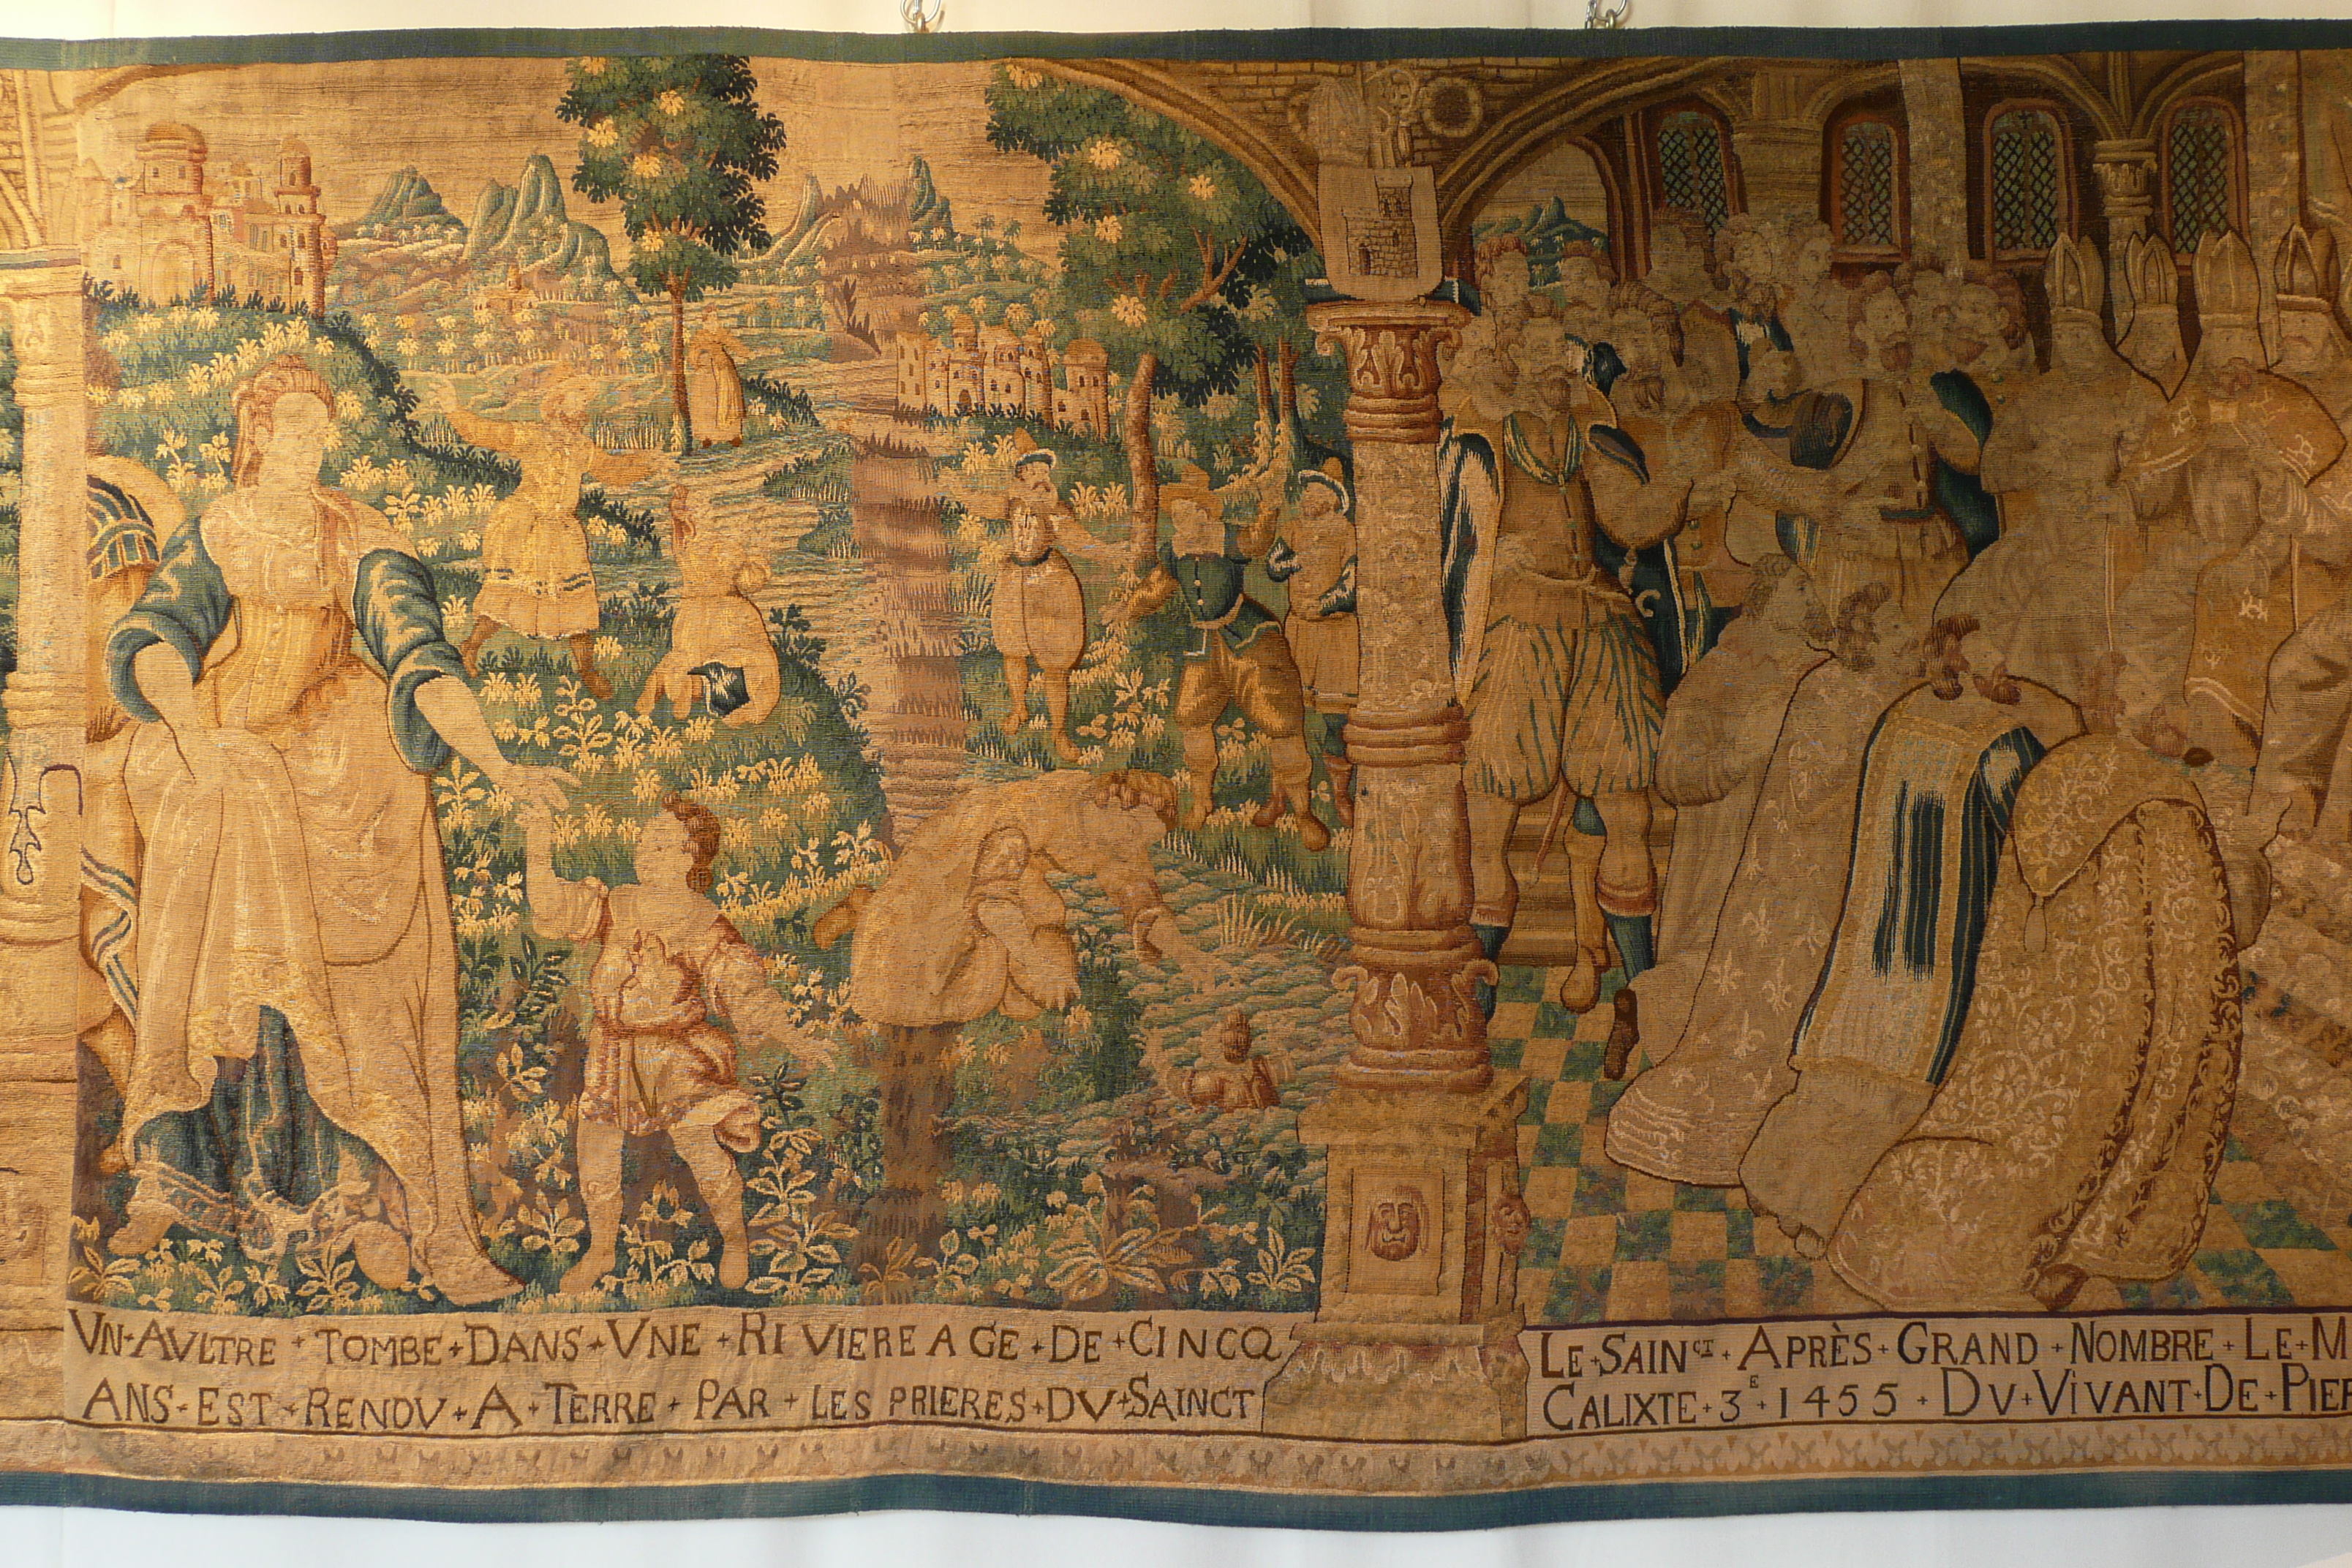 VN AVLTRE TOMBE DANS VNE RIVIERE AGE DE CINCQ
ANS EST RENDV A TERRE PAR LES PRIERES DV SAINCT
LE SAINCT APRÈS GRAND NOMBRE LE M
CALIXTE 3E 1455 DV VIVANT DE PIER